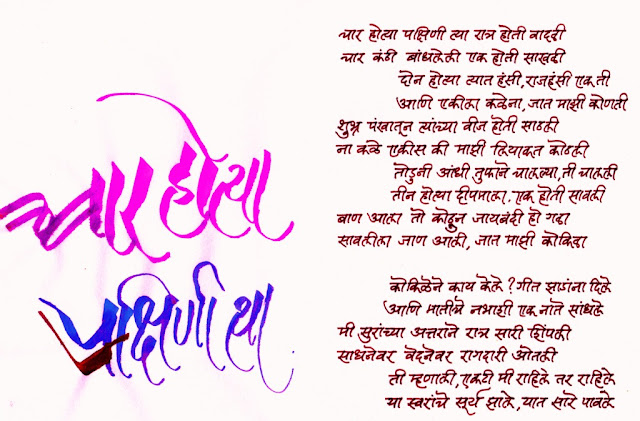 चार होत्या
पक्षिणी त्या
चार होत्या पक्षिणी त्या रात्र होती वादळी
चार कंठी बांधलेली एक होती साखळी
दोन होत्या त्यात हंसी, राजहंसी एक ती
आणि एकीला कळेना, जात माझी कोणती
शुभ्र पंखातून त्यांच्या वीज होती साठली
ना कळे एकीस की माझी हिंमत कोठली
तोडुनी आंधी तुफाने चालल्या, ती चालली
तीन होत्या दीपमाळा, एक होती सावली
बाण आला तो कोठून जायबंदी हो गळा
सावलीला जाण आली, जात माझी कोकिळा
कोकिळेने काय केले? गीत झाडांना दिले
आणि मातीचे नभाशी एक नाते सांधले
मी सुरांच्या अत्तराने रात्र सारी शिंपली
साधनेवर वेदनेवर रागदारी ओतली
ती म्हणाली, एकटी मी राहिले तर राहिले
या स्वरांचे सूर्य झाले, यात सारे पावले